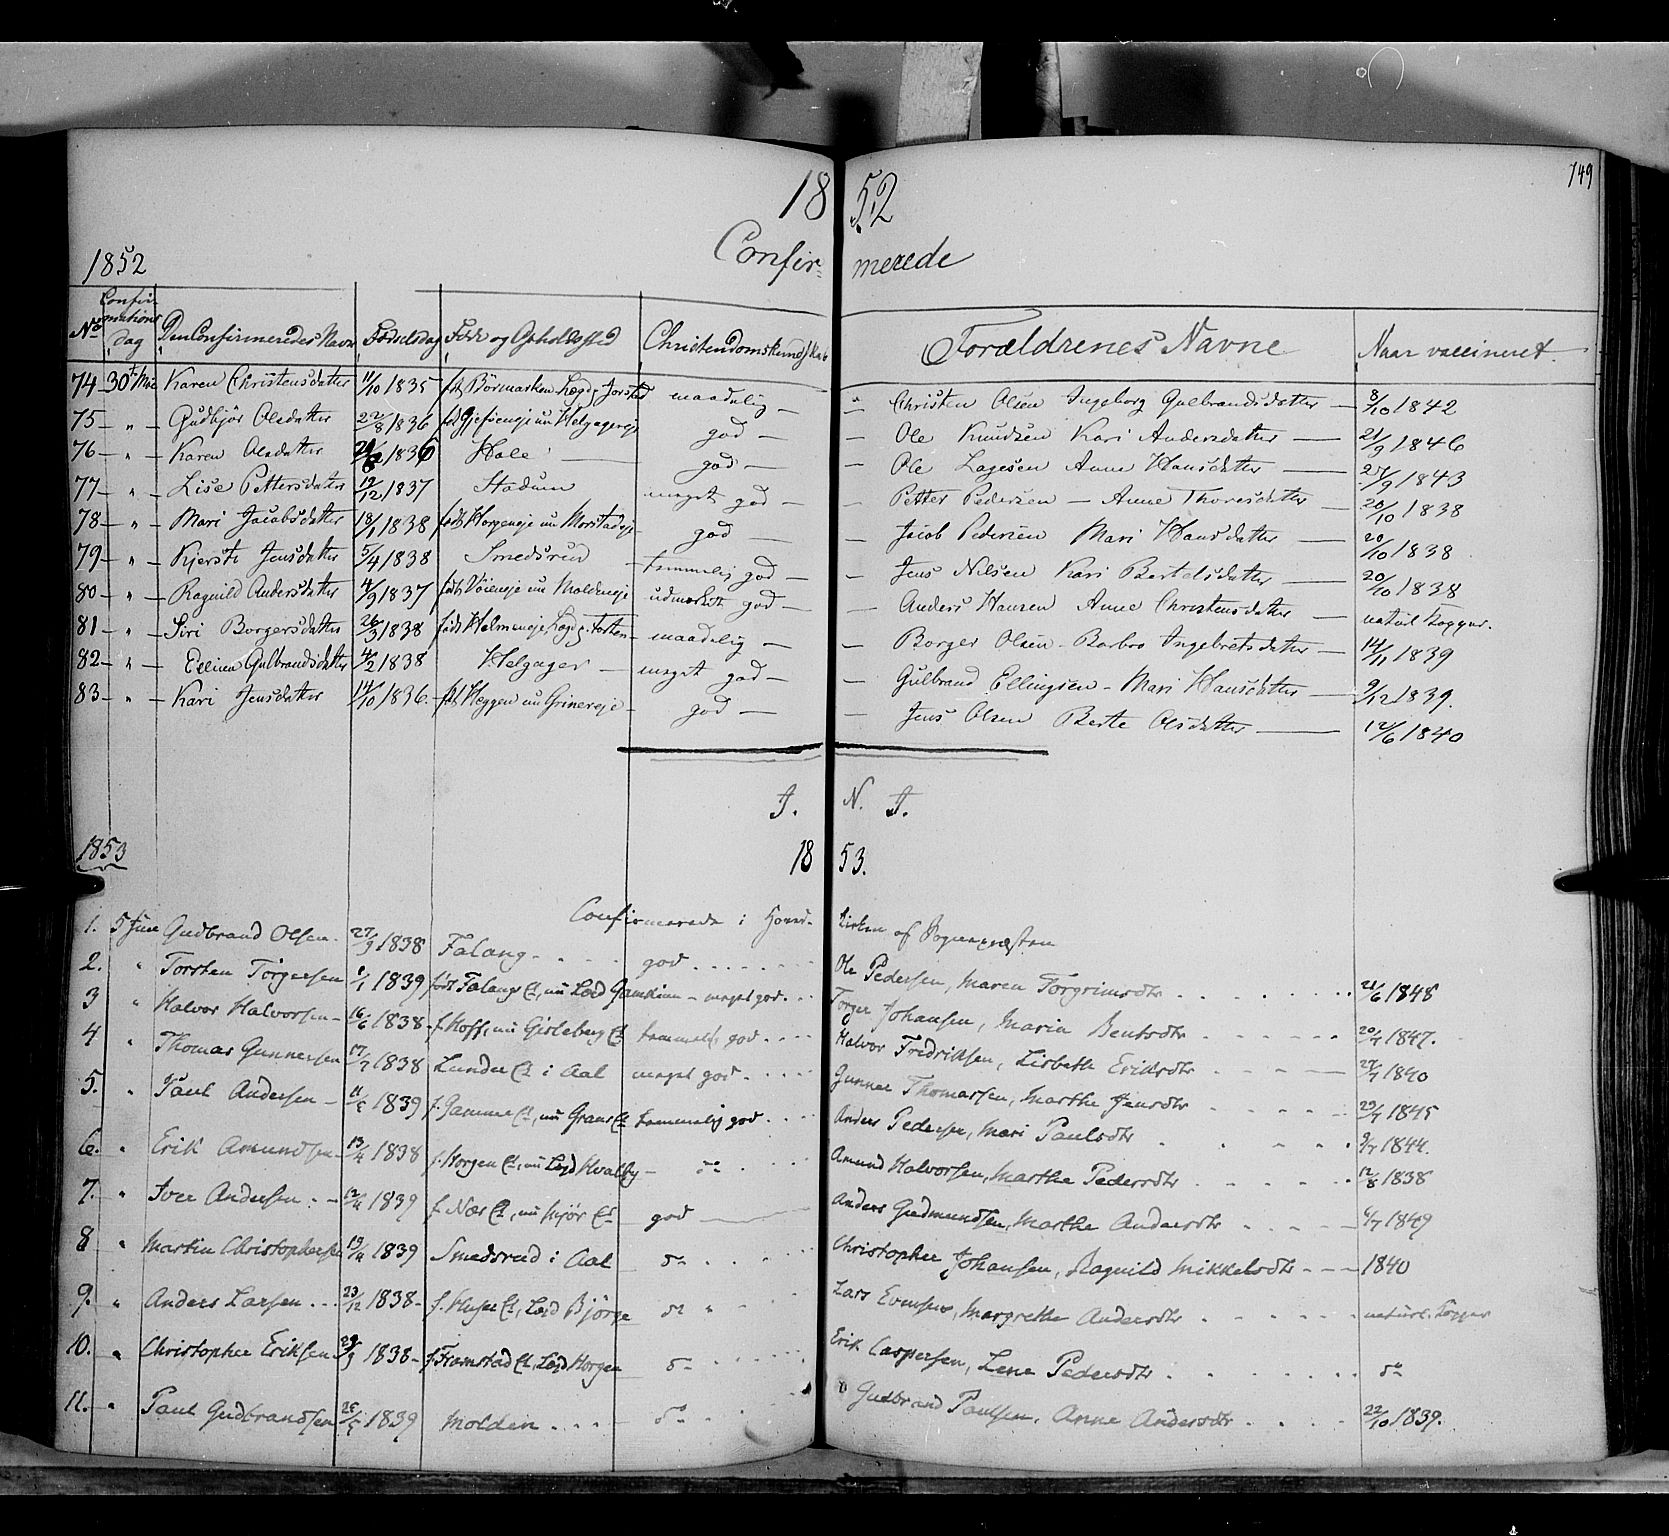 749
18 52
1852 Confir- merede
No Confirmations Dag Den Confirmeredes Navn Fødselsdag Føde og Opholdssted Christendomskundskab Forældrenes Navne Naar vaccineret
74 30te Mai Karen Christensdatter 11/10 1835 maadelig Christen Olsen Ingeborg Gulbrandsdatter 8/10 1842
75 " Gudbjør Olsdatter 22/8 1836 god Ole Knudsen Kari Andersdatter 21/9 1846
76 " Karen Olsdatter 1836 Hole god Ole Lagesen Anne Hansdatter 27/9 1843
77 " Lise Pettersdatter 19/12 1837 Stadum meget god Petter Pedersen Anne Thoresdatter 20/10 1838
78 " Mari Jacobsdatter 18/1 1838 født Horgeneje nu Morstadeje god Jacob Pedersen Mari Hansdatter 20/10 1838
79 " Kjersti Jensdatter 5/4 1838 Smedsrud temmelig god Jens Nilsen Kari Bertelsdatter 20/10 1838
80 " Ragnild Andersdatter 4/9 1837 født Vøieneje nu Moldeneje udmerket god Anders Hansen Anne Christensdatter naturl. Kopper.
81 " Siri Borgersdatter 26/3 1838 maadelig Borger Olsen Barbro Ingebretsdatter 14/11 1839
82 " Ellien Gulbrandsdatter 4/2 1838 Helgager meget god Gulbrand Ellingsen Mari Hansdatter 9/12 1839.
83 " Kari Jensdatter 14/10 1836. født Heggen nu Grinereje god Jens Olsen Berte Olsdatter 12/6 1840
J. N. J.
1853 18 53.
Confirmerede i Hoved- kirken af Sognepræsten
1. 5 June Gudbrand Olsen 27/9 1838 Falang god Ole Pedersen, Maren Torgrimsdtr 21/6 1848
2. " Torsten Torgersen 1839 født Falangs Et, nu Lægd Gamkinn meget god Torger Johansen, Maria Bentsdtr 20/7 1847.
3 " Halvor Halvorsen 16/6 1838 f. Hoff, nu Gisleberg Et temmelig god Halvor Fredriksen, Lisbeth Eriksdtr 27/7 1840
4 " Thomas Gunnersen 17/7 1838 Lunder Et i Aal meget god Gunner Thomassen, Marthe Jensdtr 29/7 1845
5. " Paul Andersen 1839 f. Gamme Et, nu Grans Et temmelig god Anders Pedersen, Mari Paulsdtr 9/7 1844.
6. " Erik Amundsen 13/4 1838 f. Horgen Et, nu Lægd Hvalby do Amund Halvorsen, Marthe Pedersdtr 12/8 1838
7. " Iver Andersen 12/4 1839 f. Næs Et, nu Kjør Et god Anders Gudmundsen, Marthe Andersdtr 6/7 1849
8 " Martin Christophersen 19/4 1839 Smedsrud i Aal do Christopher Johansen, Ragnild Mikkelsdtr 1840
9. " Anders Larsen 23/12 1838 Lægd Bjørge do Lars Evensen, Margrethe Andersdtr naturl. Kopper
10. " Christopher Eriksen 29/9 1838 f. Framstad Et, Lægd Horgen do Erik Caspersen, Lene Pedersdtr do
11. " Paul Gudbrandsen 1839 Molden do Gudbrand Paulsen, Anne Andersdtr 22/10 1839.